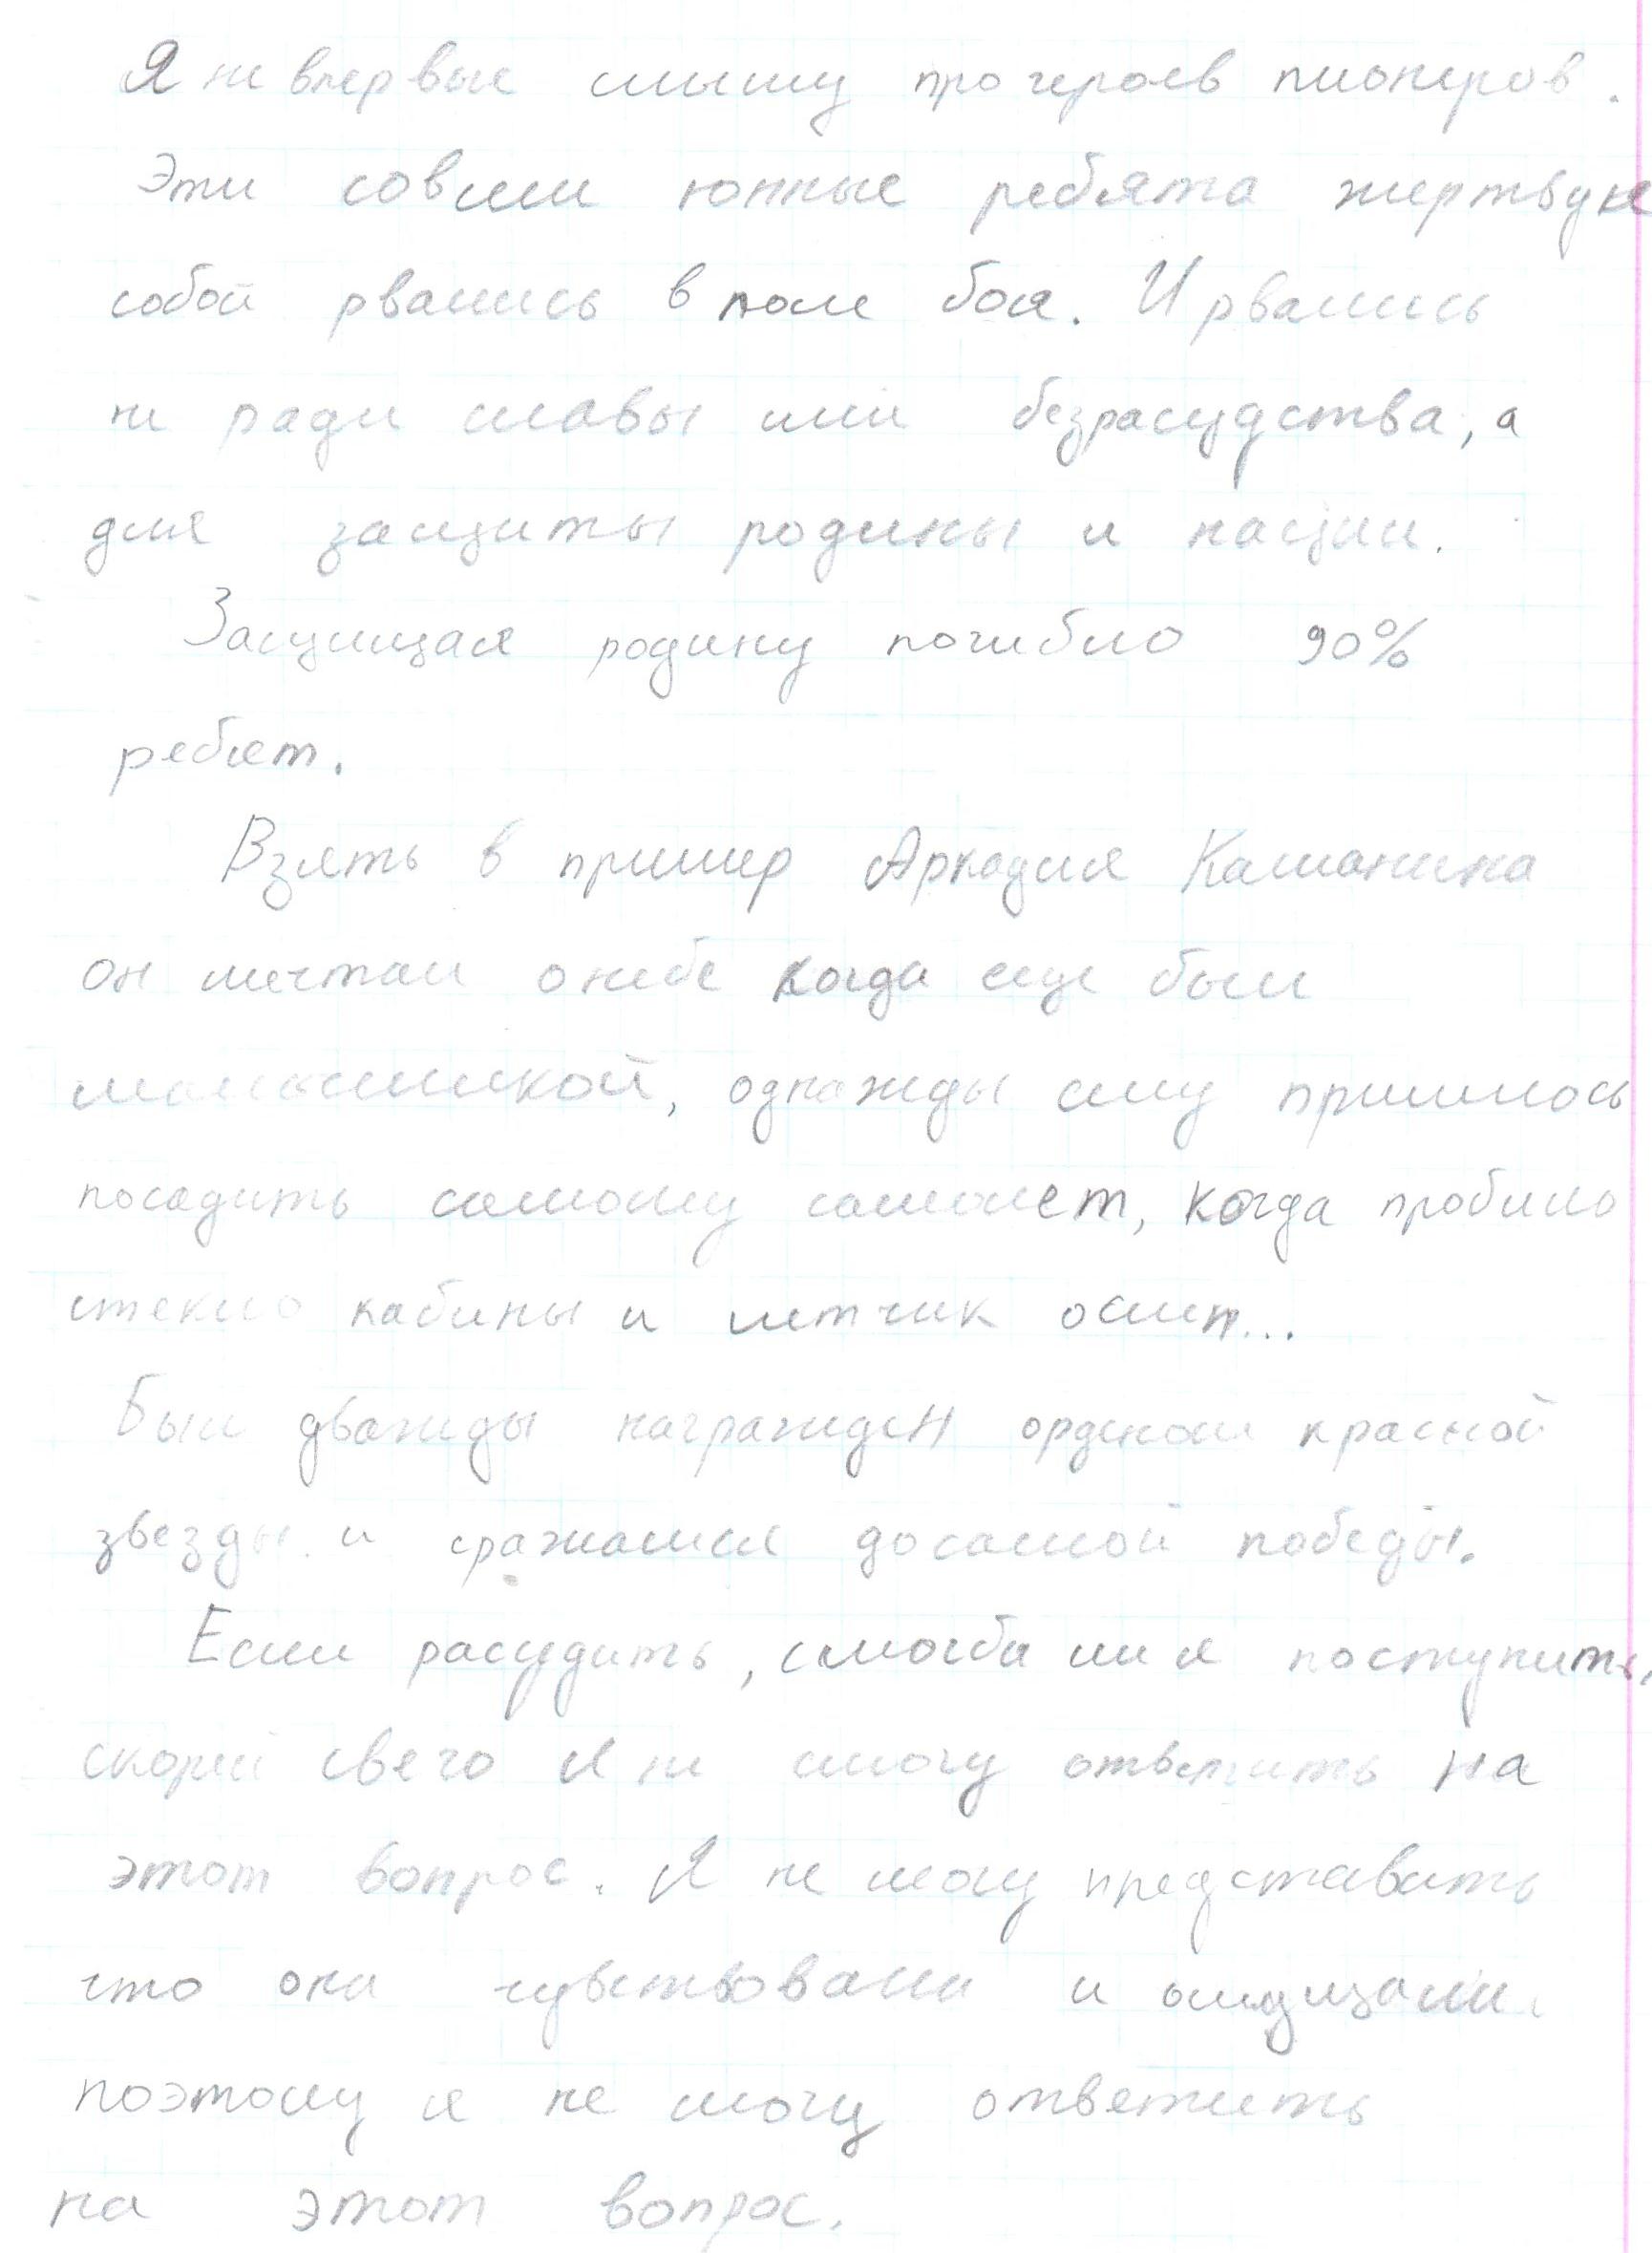 Я не впервые слышу про героев пионеров.
Эти совсем юнные ребята жертвуя
собой рвались в поле боя. И рвались
не ради славы или безрасудства, а
для защиты родины и нации.
Защищая родину погибло 90%
ребят.
Взять в пример Аркадия Каманина
он мечтал о небе когда еще был
малышкой, однажды ему пришлось
посадить самому самолет, когда пробило
стекло кабины и летчик ослеп...
Был дважды награжден орденом красной
звезды и сражался до самой победы.
Если расудить, смогба ли я поступить,
скорей свего я не смогу ответить на
этот вопрос. Я не могу представить
что они чувствовали и ощущали.
поэтому я не могу ответить
на этот вопрос.